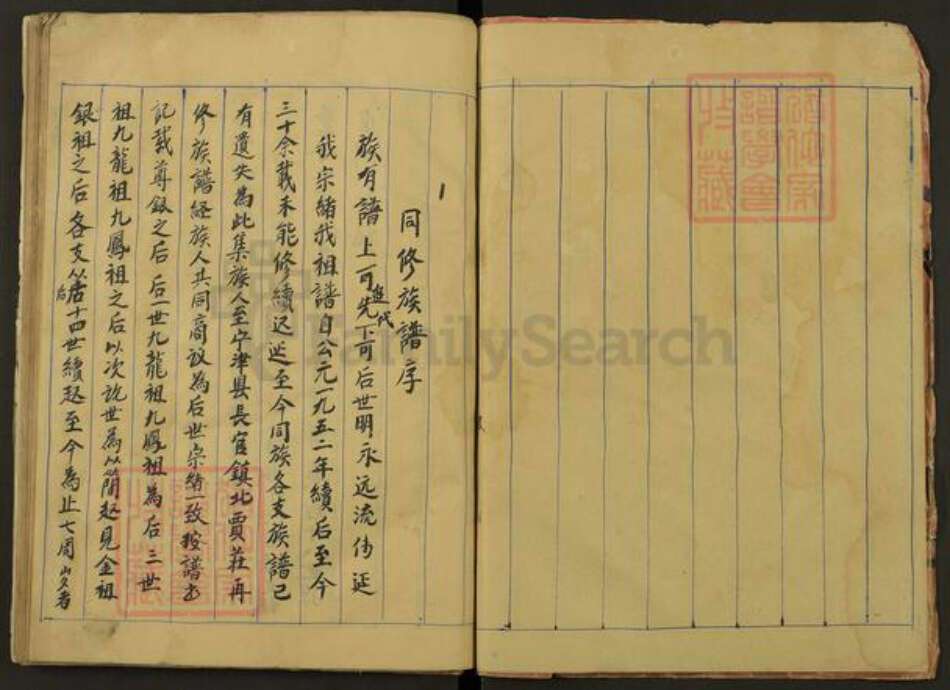 1
同修族譜序
族有譜上可追先代下可后世明永远流传延
我宗绪我祖譜自公元一九五二年續后至今
三十余载未能修續迟迟至今同族各支族譜已
有遗失为此集族人至宁津县長官鎮北賈莊再
修族譜经族人共同商议为后世宗绪一致按譜书
記载尊銀之后后一世九龍祖九鳳祖為后三世
祖九龍祖九鳳祖之后以次说世為以蘭起見金祖
銀祖之后各支以后十四世續起至今為止七周岁者
FamilySearch